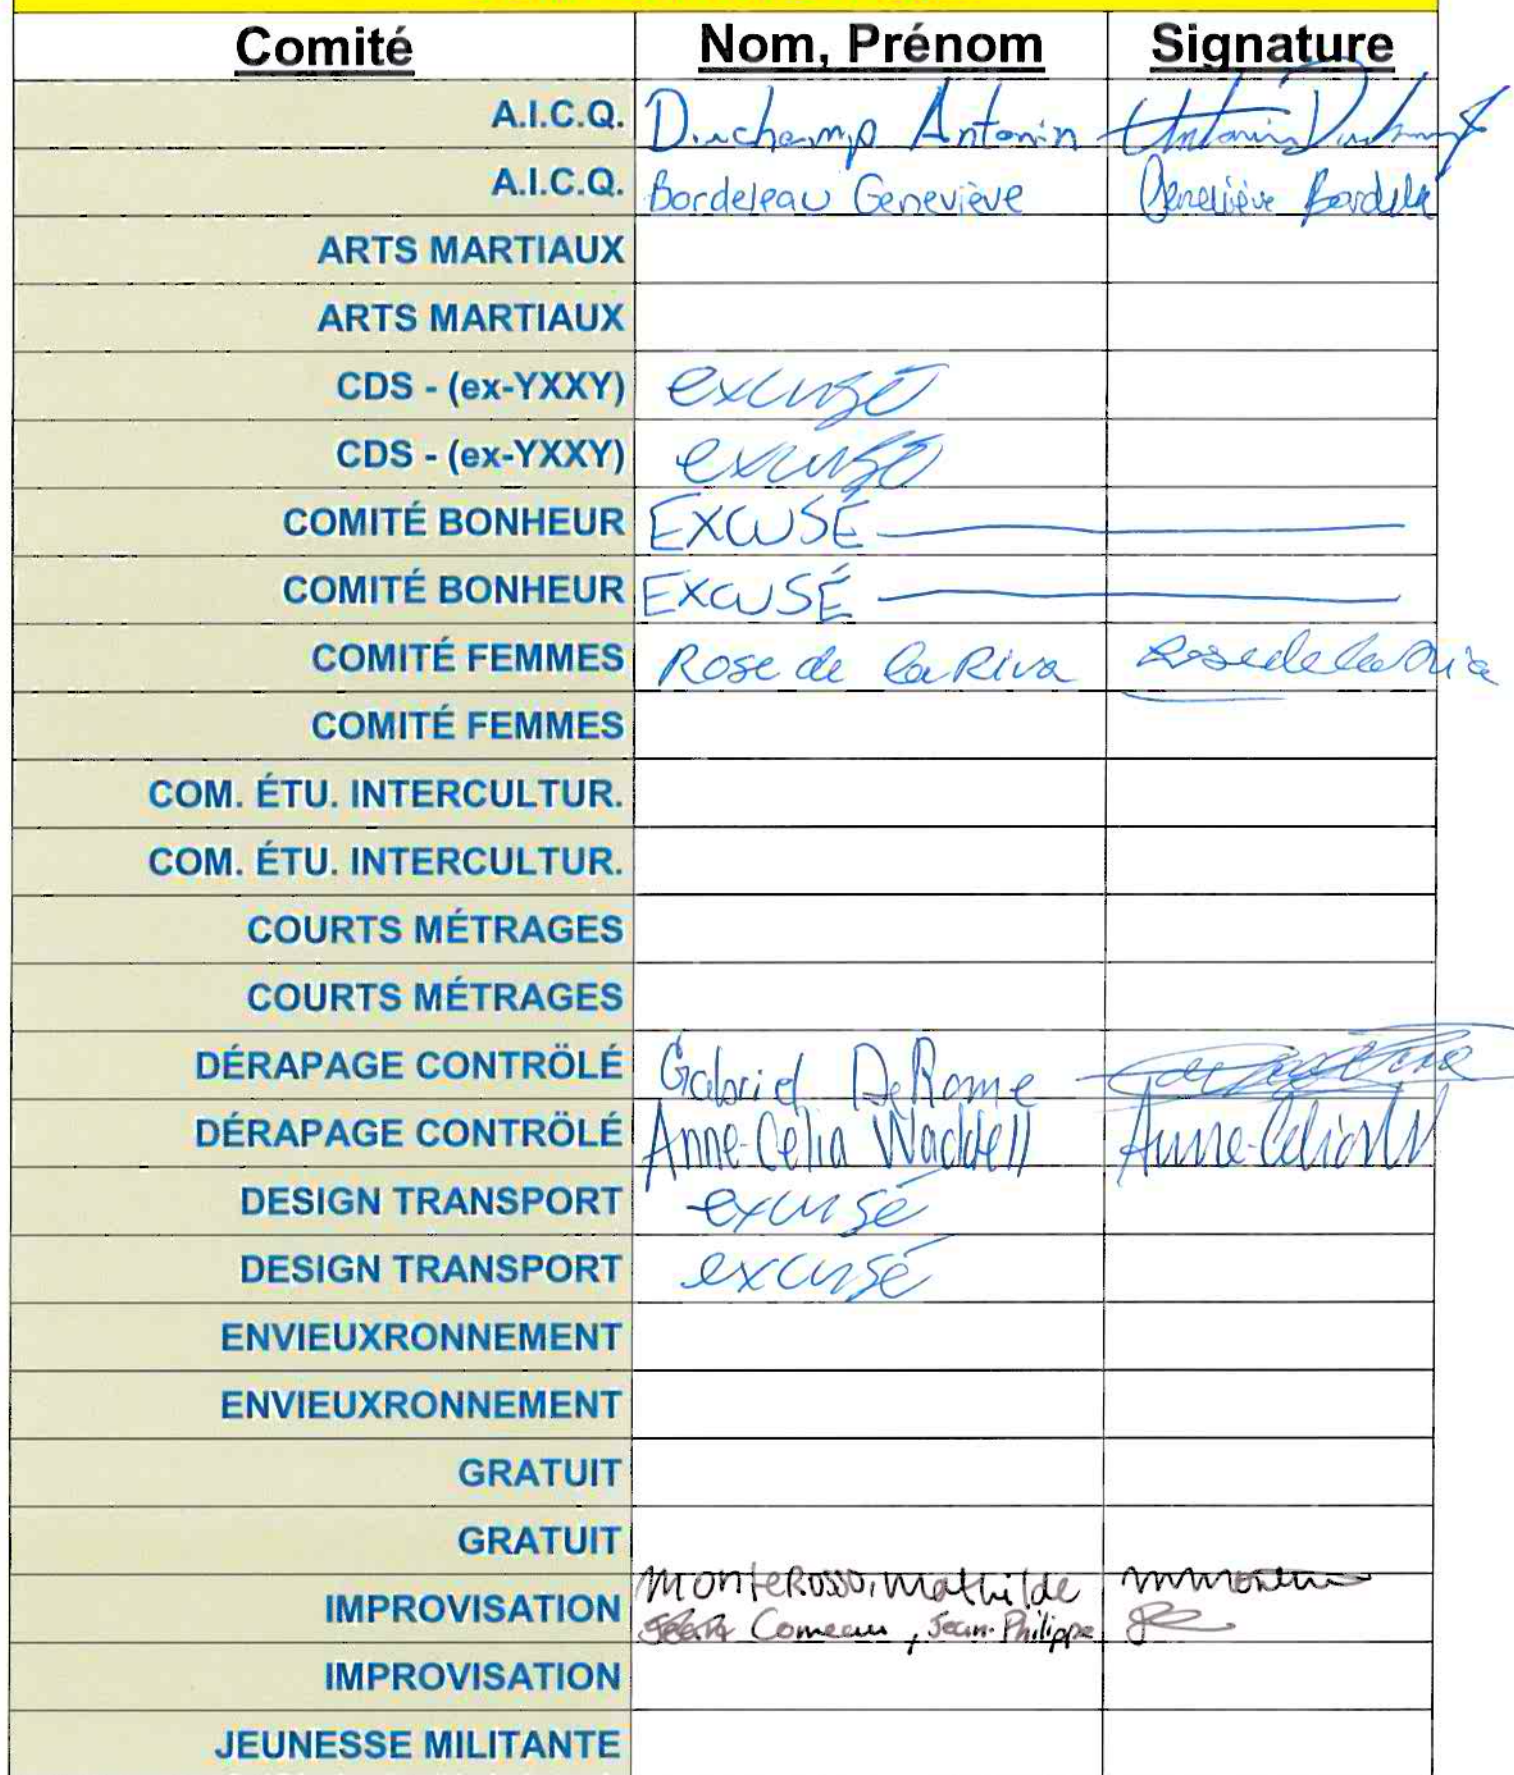 Comité Nom, Prénom Signature
A.I.C.Q. Duchamp Antonin Antonin Duchamp
A.I.C.Q. Bordeleau Geneviève Geneviève Bordele
ARTS MARTIAUX
ARTS MARTIAUX
CDS - (ex-YXXY) excusé
CDS - (ex-YXXY) excusé
COMITÉ BONHEUR EXCUSÉ
COMITÉ BONHEUR EXCUSÉ
COMITÉ FEMMES Rose de la Riva Rose de la Riva
COMITÉ FEMMES
COM. ÉTU. INTERCULTUR.
COM. ÉTU. INTERCULTUR.
COURTS MÉTRAGES
COURTS MÉTRAGES
DÉRAPAGE CONTRÖLÉ Gabriel DeRome
DÉRAPAGE CONTRÖLÉ Anne-Célia Waddell Anne-Célia W
DESIGN TRANSPORT excusé
DESIGN TRANSPORT excusé
ENVIEUXRONNEMENT
ENVIEUXRONNEMENT
GRATUIT
GRATUIT
MonteRosso, Mathilde
IMPROVISATION Comeau, Jean-Philippe
IMPROVISATION
JEUNESSE MILITANTE